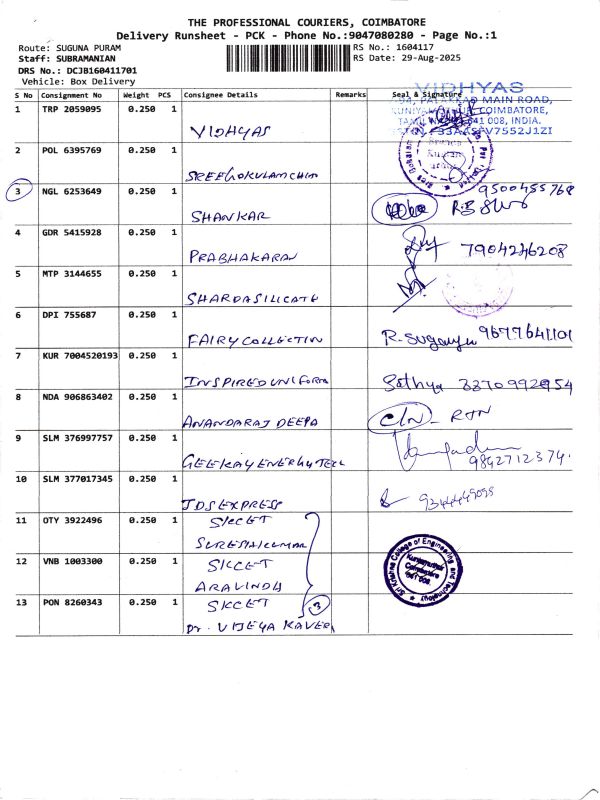 THE PROFESSIONAL COURIERS, COIMBATORE
Delivery Runsheet - PCK - Phone No.:9047080280 - Page No.:1
Route: SUGUNA PURAM
Staff: SUBRAMANIAN
DRS No.: DCJB160411701
Vehicle: Box Delivery
RS No.: 1604117
RS Date: 29-Aug-2025
S No Consignment No Weight PCS Consignee Details Remarks Seal & Signature
VIDHYAS
PALAKKAD MAIN ROAD,
COIMBATORE,
641 008, INDIA.
1 TRP 2059095 0.250 1 VIDHYAS
2 POL 6395769 0.250 1 SREEGOKULAMCHIM
3 NGL 6253649 0.250 1 SHANKAR 9500455768
4 GDR 5415928 0.250 1 PRABHAKARAN 7904246208
5 MTP 3144655 0.250 1 SHARDASILICATE
6 DPI 755687 0.250 1 FAIRYCOLLECTION R. Suganya 9677641101
7 KUR 7004520193 0.250 1 INSPIREDUNIFORM Sathya
8 NDA 906863402 0.250 1 ANANDARAJ DEEPA C/N - RTN
9 SLM 376997757 0.250 1 GEEKAYENERGYTECL 9842712374.
10 SLM 377017345 0.250 1 JDSEXPRESS 9344449098
11 OTY 3922496 0.250 1 SKCET
SURESHKUMAR
12 VNB 1003300 0.250 1 SKCET
ARAVINDH
13 PON 8260343 0.250 1 SKCET 3
Dr. VIJEYA KAVERI
Sri Krishna College of Engineering and Technology
Kuniyamuthur
Coimbatore
641 008.